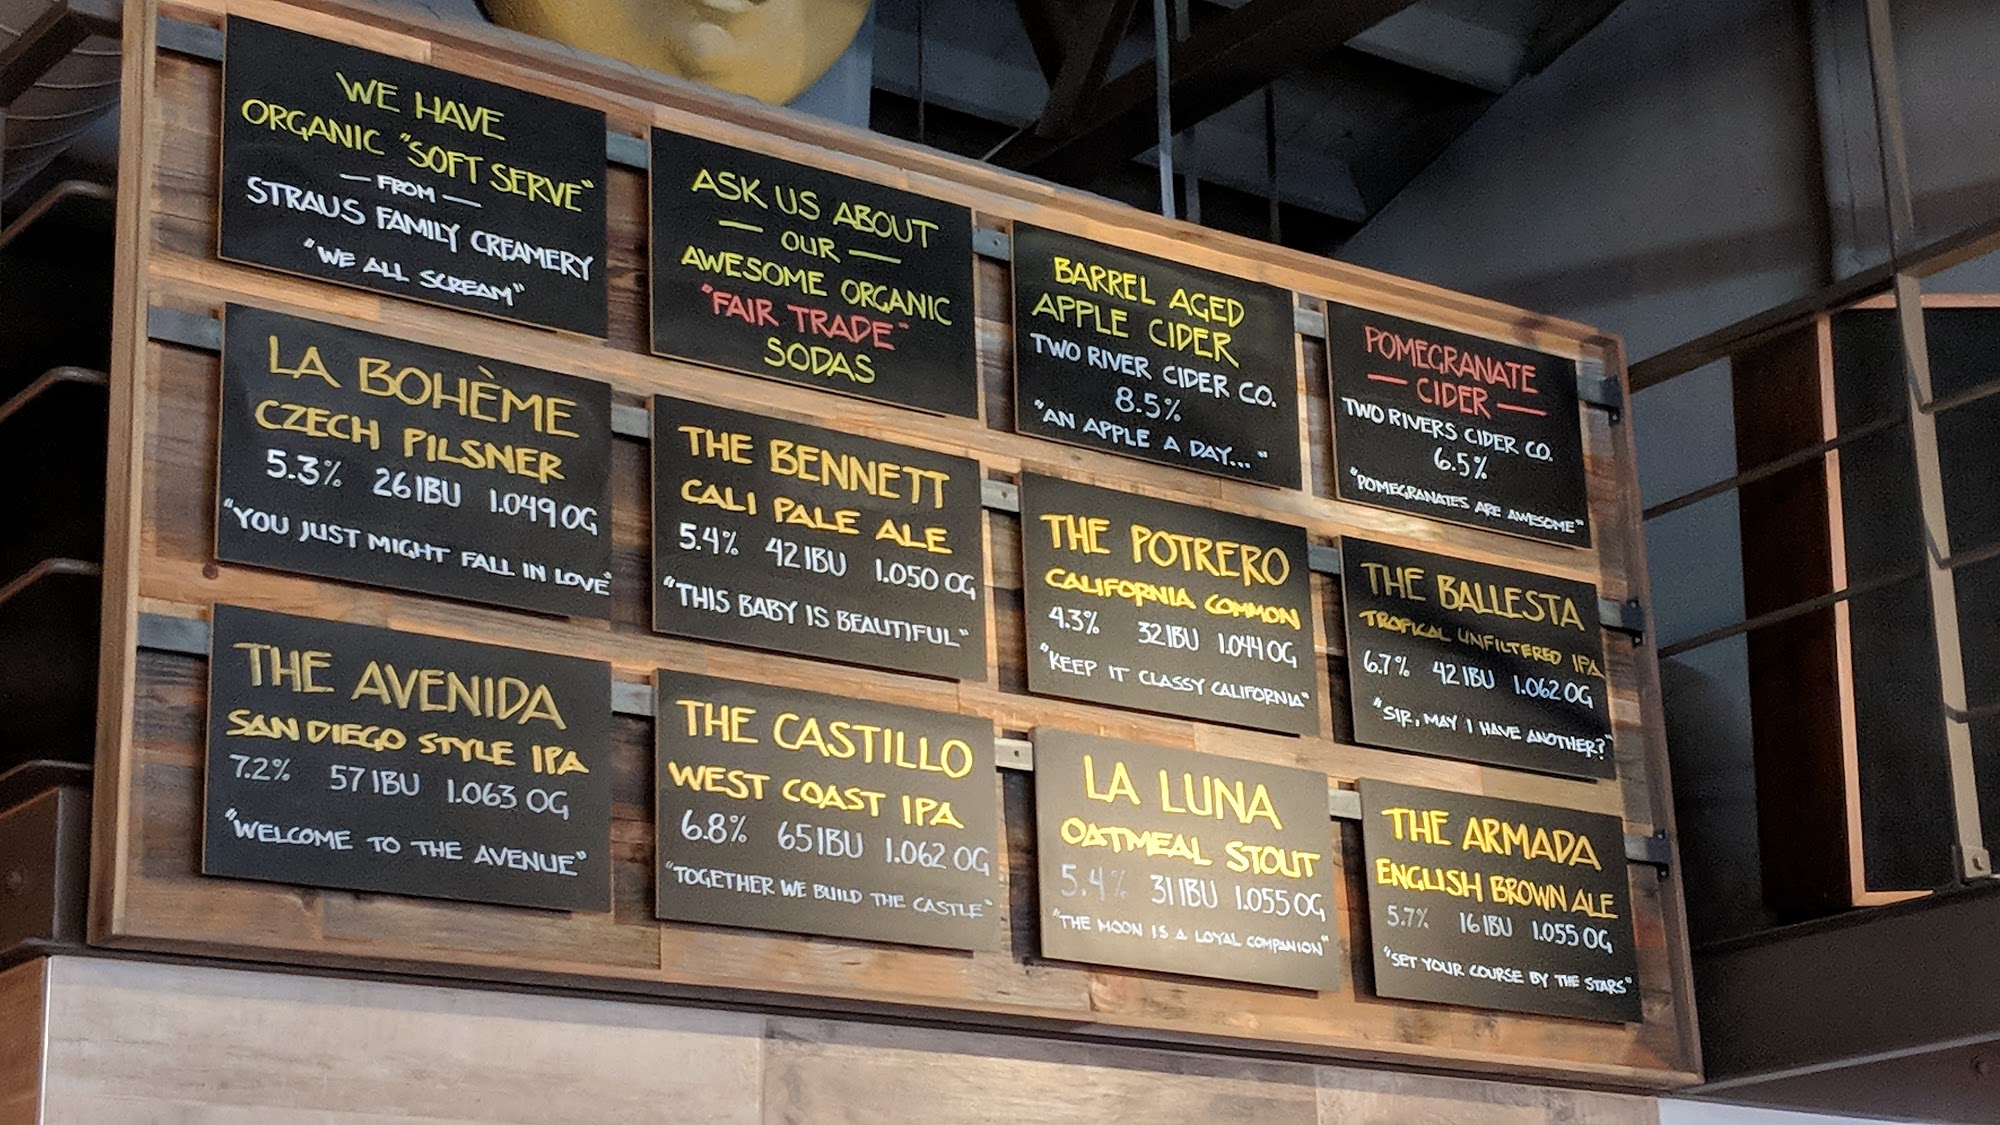 WE HAVE
ORGANIC "SOFT SERVE"
— FROM —
STRAUS FAMILY CREAMERY
"WE ALL SCREAM"
ASK US ABOUT
— OUR —
AWESOME ORGANIC
"FAIR TRADE"
SODAS
BARREL AGED
APPLE CIDER
TWO RIVER CIDER CO.
8.5%
"AN APPLE A DAY..."
POMEGRANATE
— CIDER —
TWO RIVERS CIDER CO.
6.5%
"POMEGRANATES ARE AWESOME"
LA BOHÈME
CZECH PILSNER
5.3% 26 IBU 1.049 OG
"YOU JUST MIGHT FALL IN LOVE"
THE BENNETT
CALI PALE ALE
5.4% 42 IBU 1.050 OG
"THIS BABY IS BEAUTIFUL"
THE POTRERO
CALIFORNIA COMMON
4.3% 32 IBU 1.044 OG
"KEEP IT CLASSY CALIFORNIA"
THE BALLESTA
TROPICAL UNFILTERED IPA
6.7% 42 IBU 1.062 OG
"SIR, MAY I HAVE ANOTHER?"
THE AVENIDA
SAN DIEGO STYLE IPA
7.2% 57 IBU 1.063 OG
"WELCOME TO THE AVENUE"
THE CASTILLO
WEST COAST IPA
6.8% 65 IBU 1.062 OG
"TOGETHER WE BUILD THE CASTLE"
LA LUNA
OATMEAL STOUT
5.4% 31 IBU 1.055 OG
"THE MOON IS A LOYAL COMPANION"
THE ARMADA
ENGLISH BROWN ALE
5.7% 16 IBU 1.055 OG
"SET YOUR COURSE BY THE STARS"